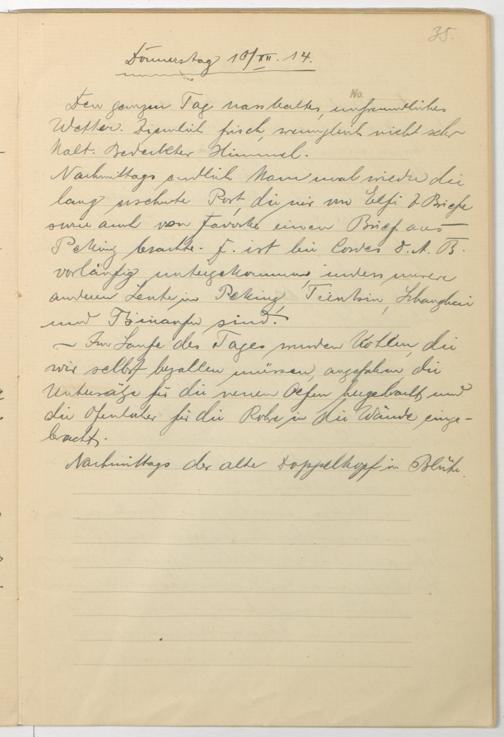 35.
Donnerstag 10/XII. 14.
Den ganzen Tag nasskaltes, unfreundliches
Wetter. Ziemlich frisch, wenngleich nicht sehr
kalt. Bedeckter Himmel.
Nachmittags endlich kam mal wieder die
lang ersehnte Post, die mir von Elfi 2 Briefe
sowie auch von einen Brief aus
Peking brachte. F. ist bei Cordes D. A. B.
vorläufig untergekommen, indess unsere
anderen Leute in Peking, Tientsin, Schanghai
und Tsinanfu sind.
– Im Laufe des Tages wurden Kohlen, die
wir selbst bezahlen müssen, angefahren die
Untersätze für die neuen Oefen hergebracht und
die für die Rohre in die Wände einge-
bracht.
Nachmittags der alte Doppelkopf in Blüte.